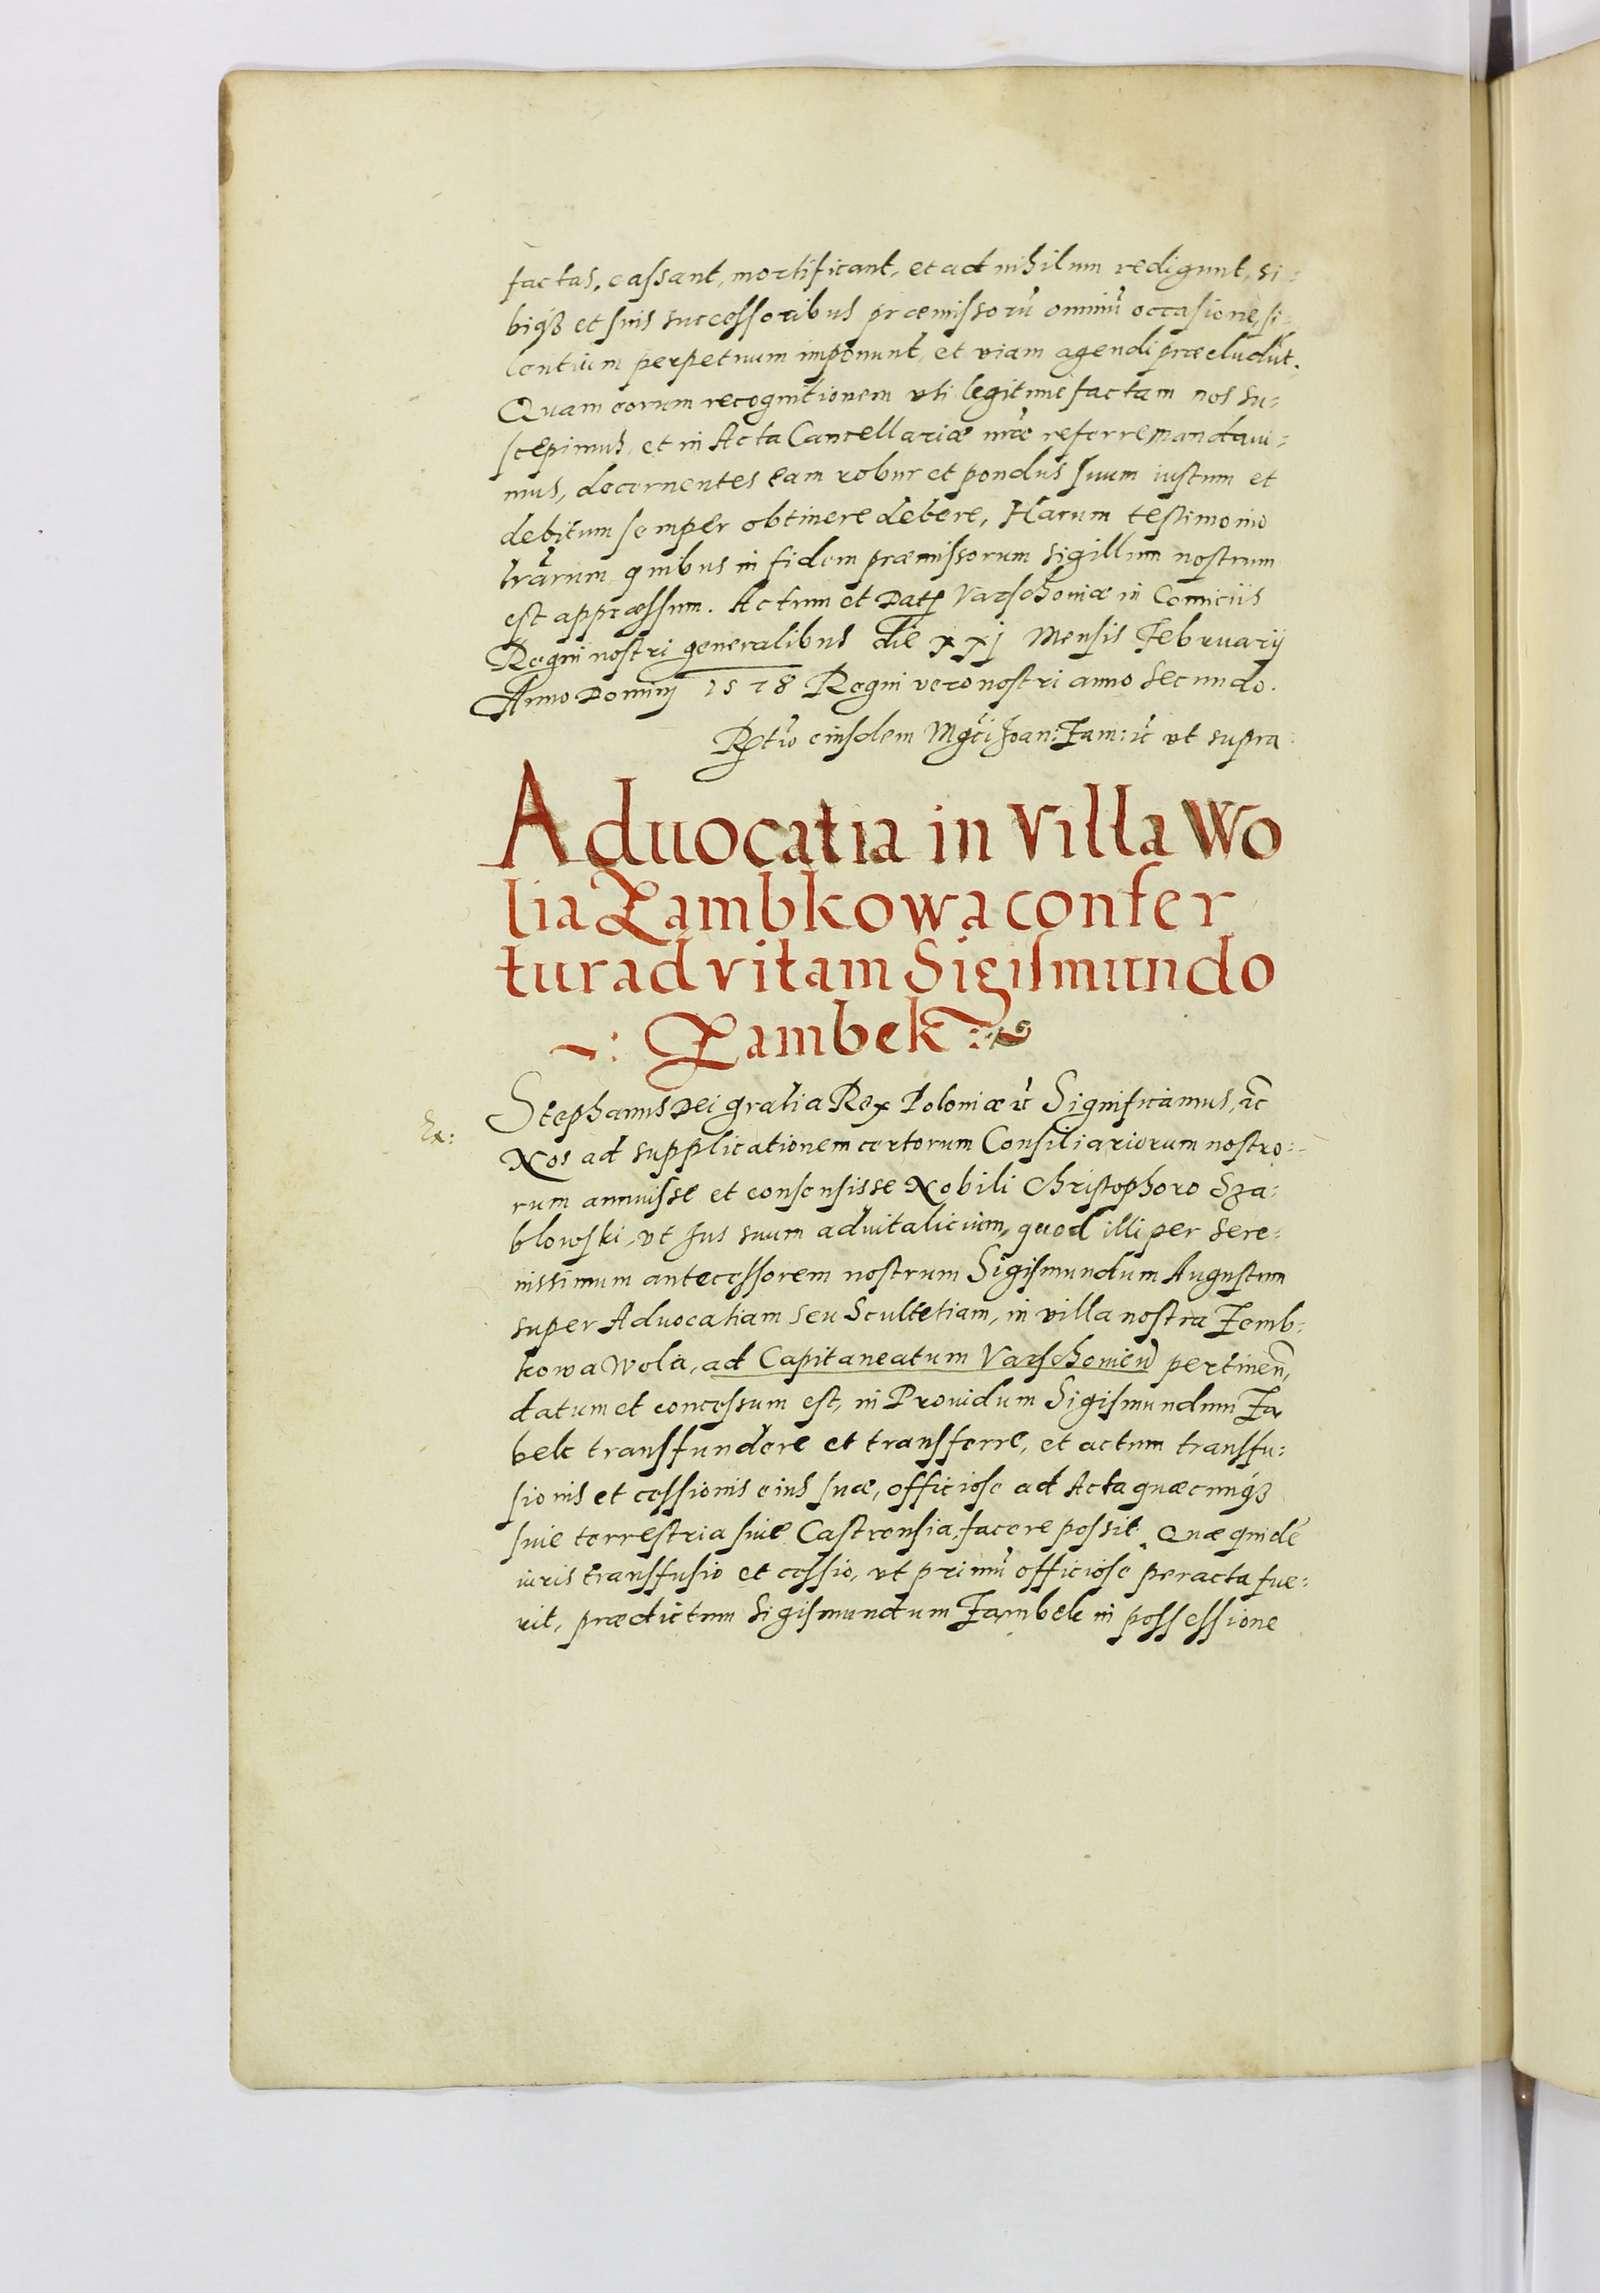 factas, cassant, mortificant, et ad nihilum redigunt, si-
biq3 et suis successoribus præmissorū omniū occasione, si-
lentium perpetuum imponunt, et viam agendi præcludūt.
Quam eorum recognitionem uti legitime factam nos su-
scepimus, et in Acta Cancellariæ nr̃æ referre mandavi-
mus, decernentes eam robur et pondus suum iustum et
debitum semper obtinere debere, Harum testimonio
lrãrum quibus in fidem præmissorum sigillum nostrum
est appræssum. Actum et Dat Varschoviæ in Comiciis
Regni nostri generalibus die xxj Mensis Februarij
Anno Domini 1578 Regni vero nostri anno Secundo.
Rtīo eiusdem Mgci Joan: Zam: ꝛc̃ ut supra
Aduocatia in Villa Wo
lia Zambkowa confer
tur ad vitam Sigismundo
~: Zambek :~
Stephanus Dei gratia Rex Poloniæ ꝛc̃ Significamus, ꝛc̃
Ex:
Nos ad supplicationem certorum Consiliariorum nostro-
rum annuisse et consensisse Nobili Christophoro Sza-
blowski, ut Jus suum aduitalicium, quod illi per Sere-
nissimum antecessorem nostrum Sigismundum Augustum
super Aduocatiam seu Scultetiam, in villa nostra Zemb-
kowa Wola, ad Capitaneatum Varschovien̄ pertinen̄,
datum et concessum est, in Prouidum Sigismundum Za
bek transfundere et transferre, et actum transfu-
sionis et cessionis eius suæ, officiose ad Acta quæcunq3
siue terrestria siue Castrensia, facere possit. Quæ quidē
iuris transfusio et cessio, ut primū officiose peracta fue-
rit, prædictum Sigismundum Zambek in possessione